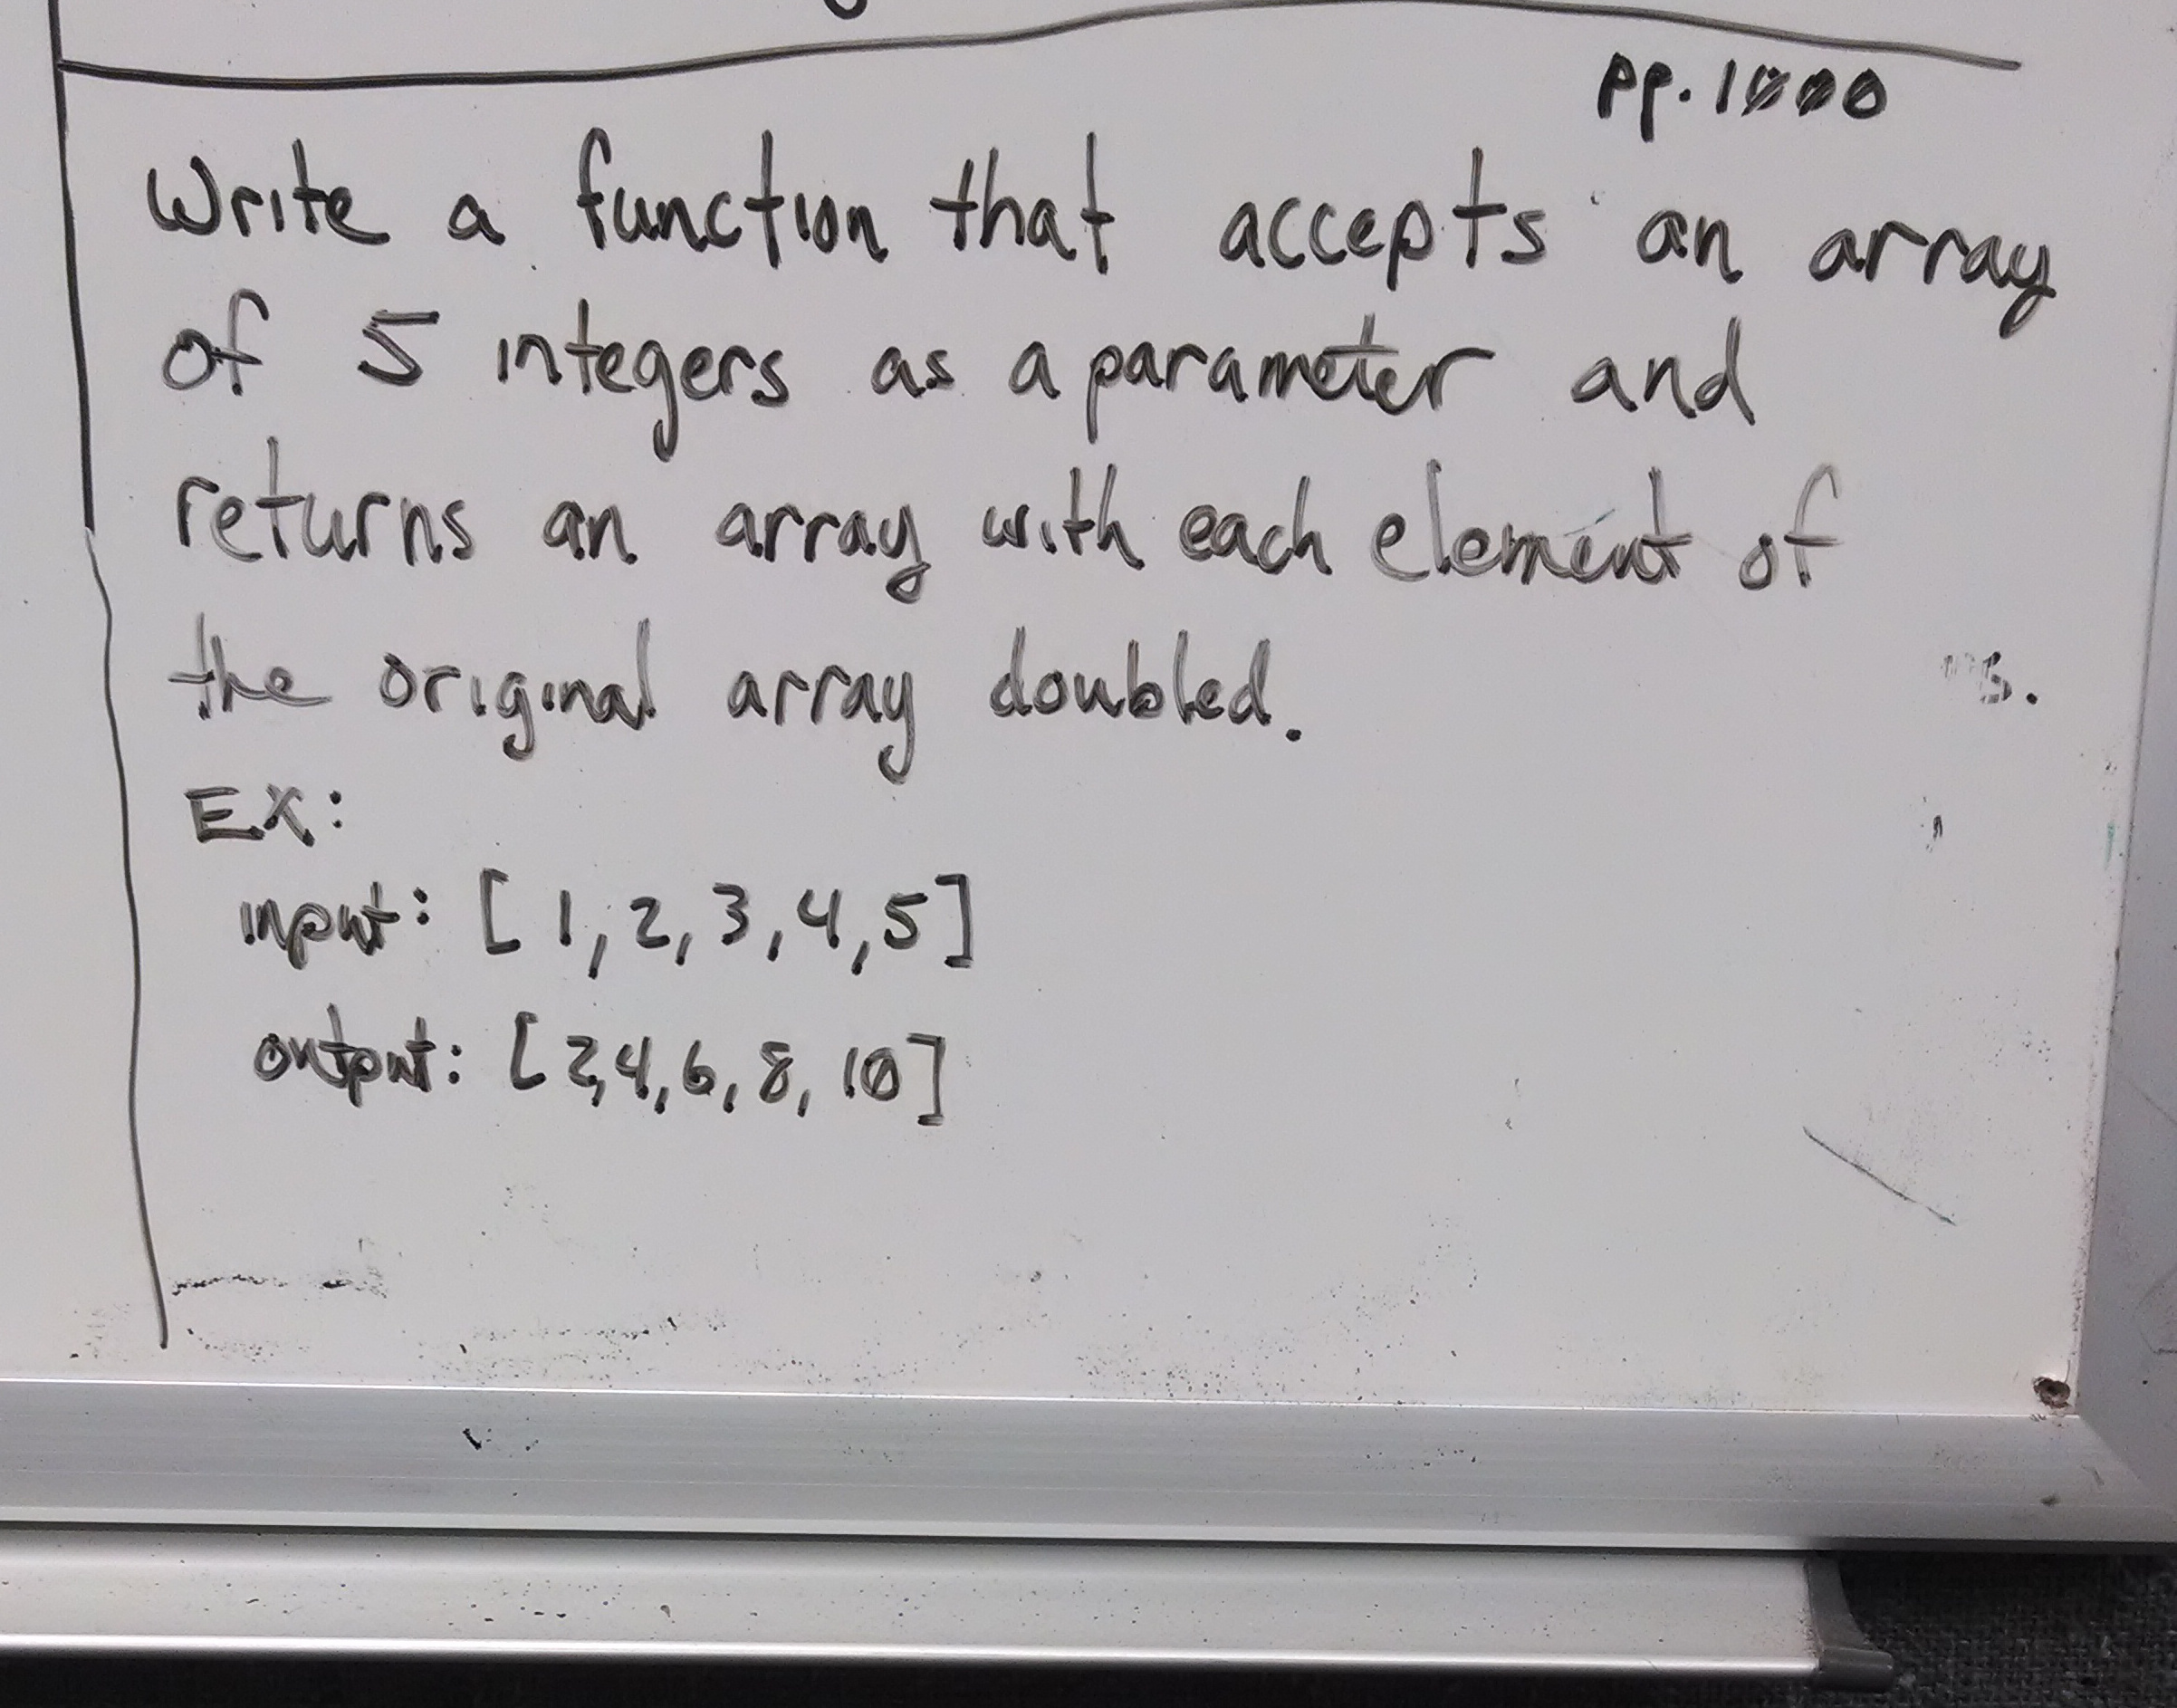 pp. 1000
Write a function that accepts an array
of 5 integers as a parameter and
returns an array with each element of
the original array doubled.
EX:
input: [1, 2, 3, 4, 5]
output: [2, 4, 6, 8, 10]